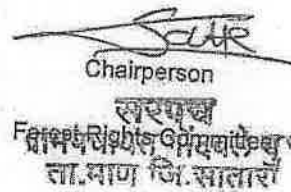 Chairperson
सरपंच
Forest Rights Committee
ता.माण जि.सातारा